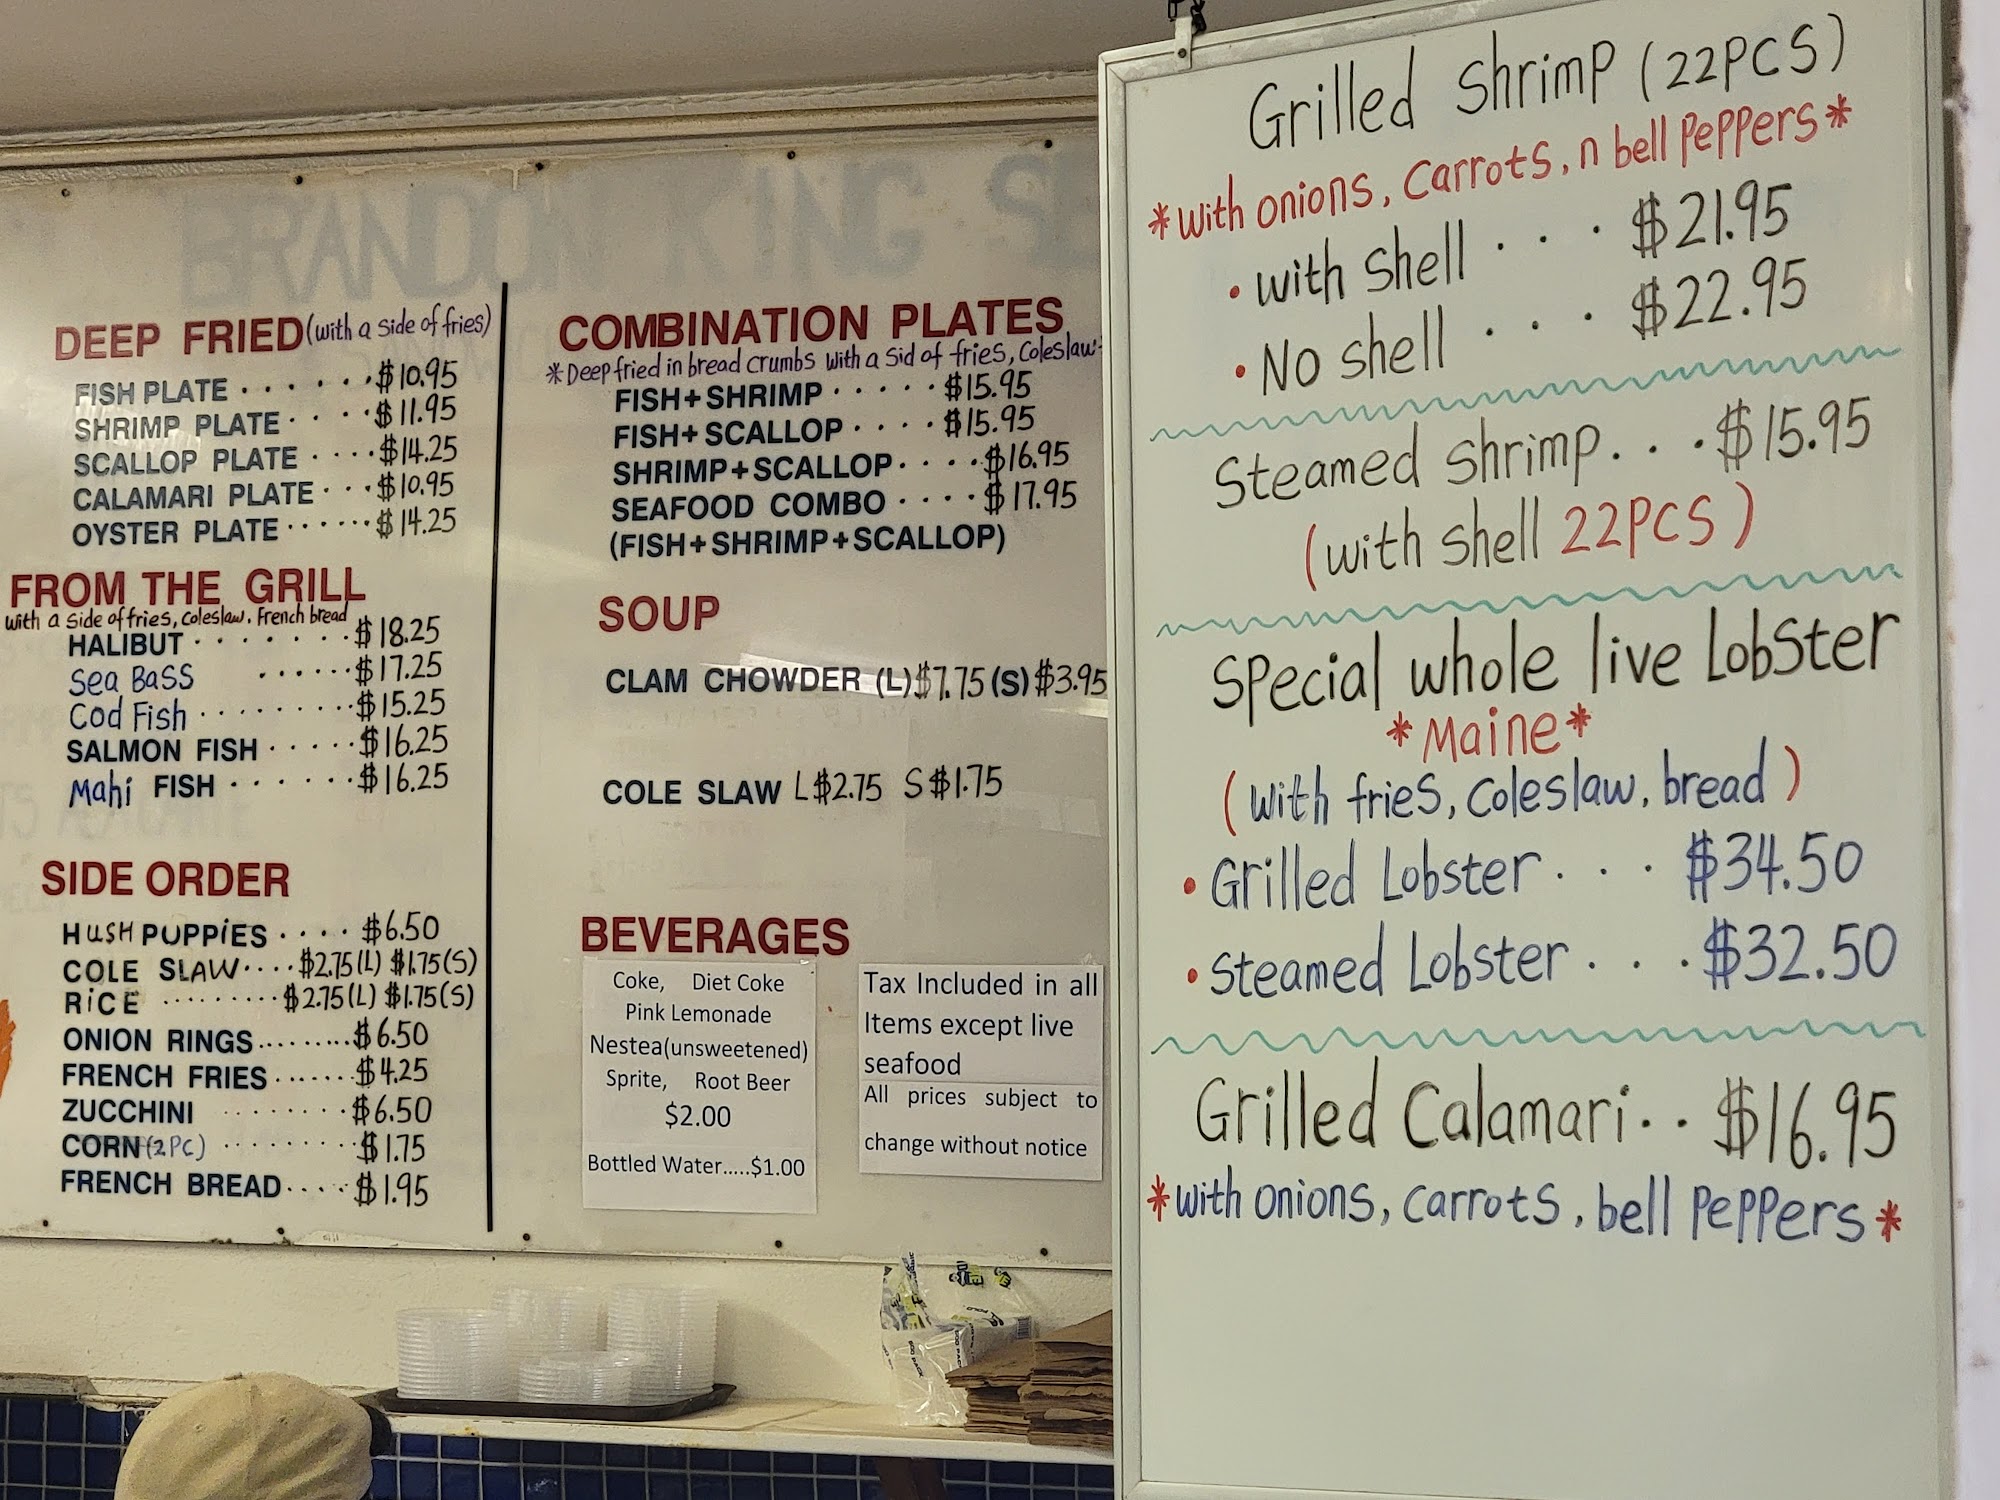 BRANDON KING SE
DEEP FRIED (with a side of fries)
FISH PLATE . . . . . . . $10.95
SHRIMP PLATE . . . . $11.95
SCALLOP PLATE . . . . $14.25
CALAMARI PLATE . . . $10.95
OYSTER PLATE . . . . . . $14.25
FROM THE GRILL
with a side of fries, coleslaw. French bread
HALIBUT . . . . . . . $18.25
Sea Bass . . . . . . $17.25
Cod Fish . . . . . . . . . $15.25
SALMON FISH . . . . . $16.25
Mahi FISH . . . . . . $16.25
SIDE ORDER
HUSH PUPPiES . . . . $6.50
COLE SLAW . . . . $2.75(L) $1.75(S)
RiCE . . . . . . . . . $2.75(L) $1.75(S)
ONION RINGS . . . . . . . . . $6.50
FRENCH FRIES . . . . . . . $4.25
ZUCCHINI . . . . . . . . $6.50
CORN (2PC) . . . . . . . . . $1.75
FRENCH BREAD . . . . . $1.95
COMBINATION PLATES
*Deep fried in bread crumbs with a sid of fries, Coleslaw
FISH+SHRIMP . . . . . $15.95
FISH+SCALLOP . . . . . $15.95
SHRIMP+SCALLOP . . . . $16.95
SEAFOOD COMBO . . . . $17.95
(FISH+SHRIMP+SCALLOP)
SOUP
CLAM CHOWDER (L) $7.75 (S) $3.95
COLE SLAW L $2.75 S $1.75
BEVERAGES
Coke, Diet Coke
Pink Lemonade
Nestea(unsweetened)
Sprite, Root Beer
$2.00
Bottled Water.....$1.00
Tax Included in all
Items except live
seafood
All prices subject to
change without notice
Grilled Shrimp (22PCS)
*with onions, carrots, n bell peppers*
• with Shell . . . $21.95
• No shell . . . $22.95
Steamed shrimp . . . $15.95
(with shell 22PCS)
Special whole live Lobster
*Maine*
(with fries, coleslaw, bread)
• Grilled Lobster . . . $34.50
• Steamed Lobster . . . $32.50
Grilled Calamari . . $16.95
*with onions, carrots, bell peppers*